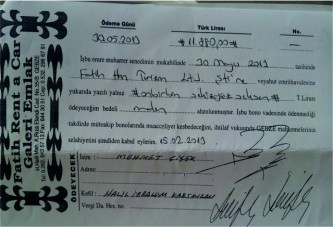 Ödeme Günü Türk Lirası No.
30.05.2019 #11.880,00#
İşbu emre muharrer senedimin mukabilinde 30 Mayıs 2019 tarihinde
Fatih Han Turizm Ltd. Şti'ne veyahut emrühavalesine
yukarıda yazılı yalnız T.Lirası
ödeyeceğim bedeli malen ahzolunmuştur. İşbu bono vadesinde ödenmediği
takdirde müteakip bonolarında muacceliyet kesbedeceğini, ihtilaf vukuunda GEBZE mahkemelerinin
selahiyetini şimdiden kabul eylerim. 15.02.2019
ÖDEYECEK
İsim : MEHMET
Adres :
Kefil : HALİL İBRAHİM
Vergi Da. Hes. no
Fatih Rent a Car
Galeri Emlak